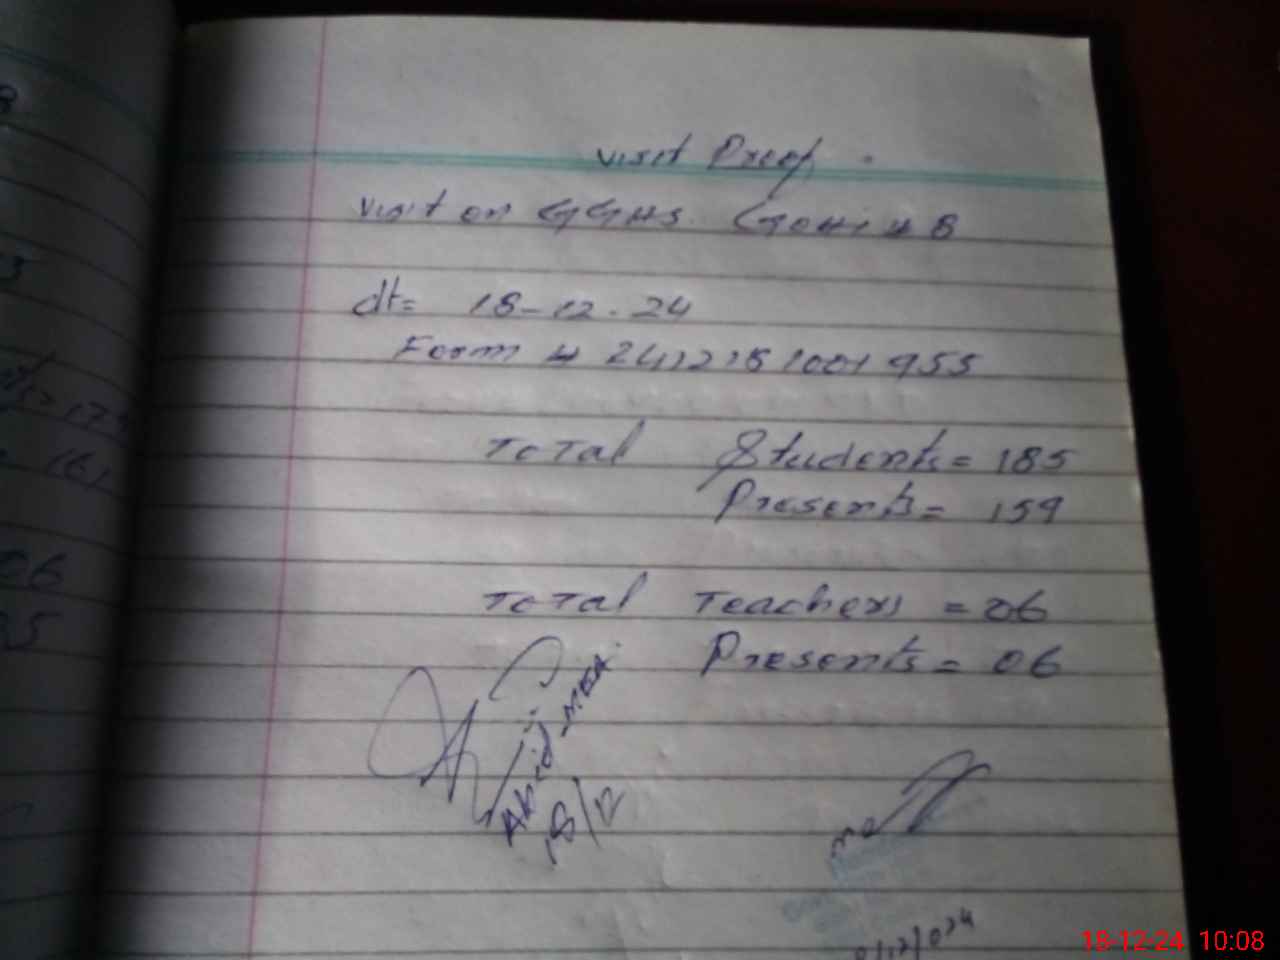 visit Proof.
visit on GGHS.
dt= 18-12.24
Form # 241218 1001 955
Total Students = 185
Presents = 159
Total Teachers = 06
Presents = 06
Abid
18/12
18-12-24 10:08
06